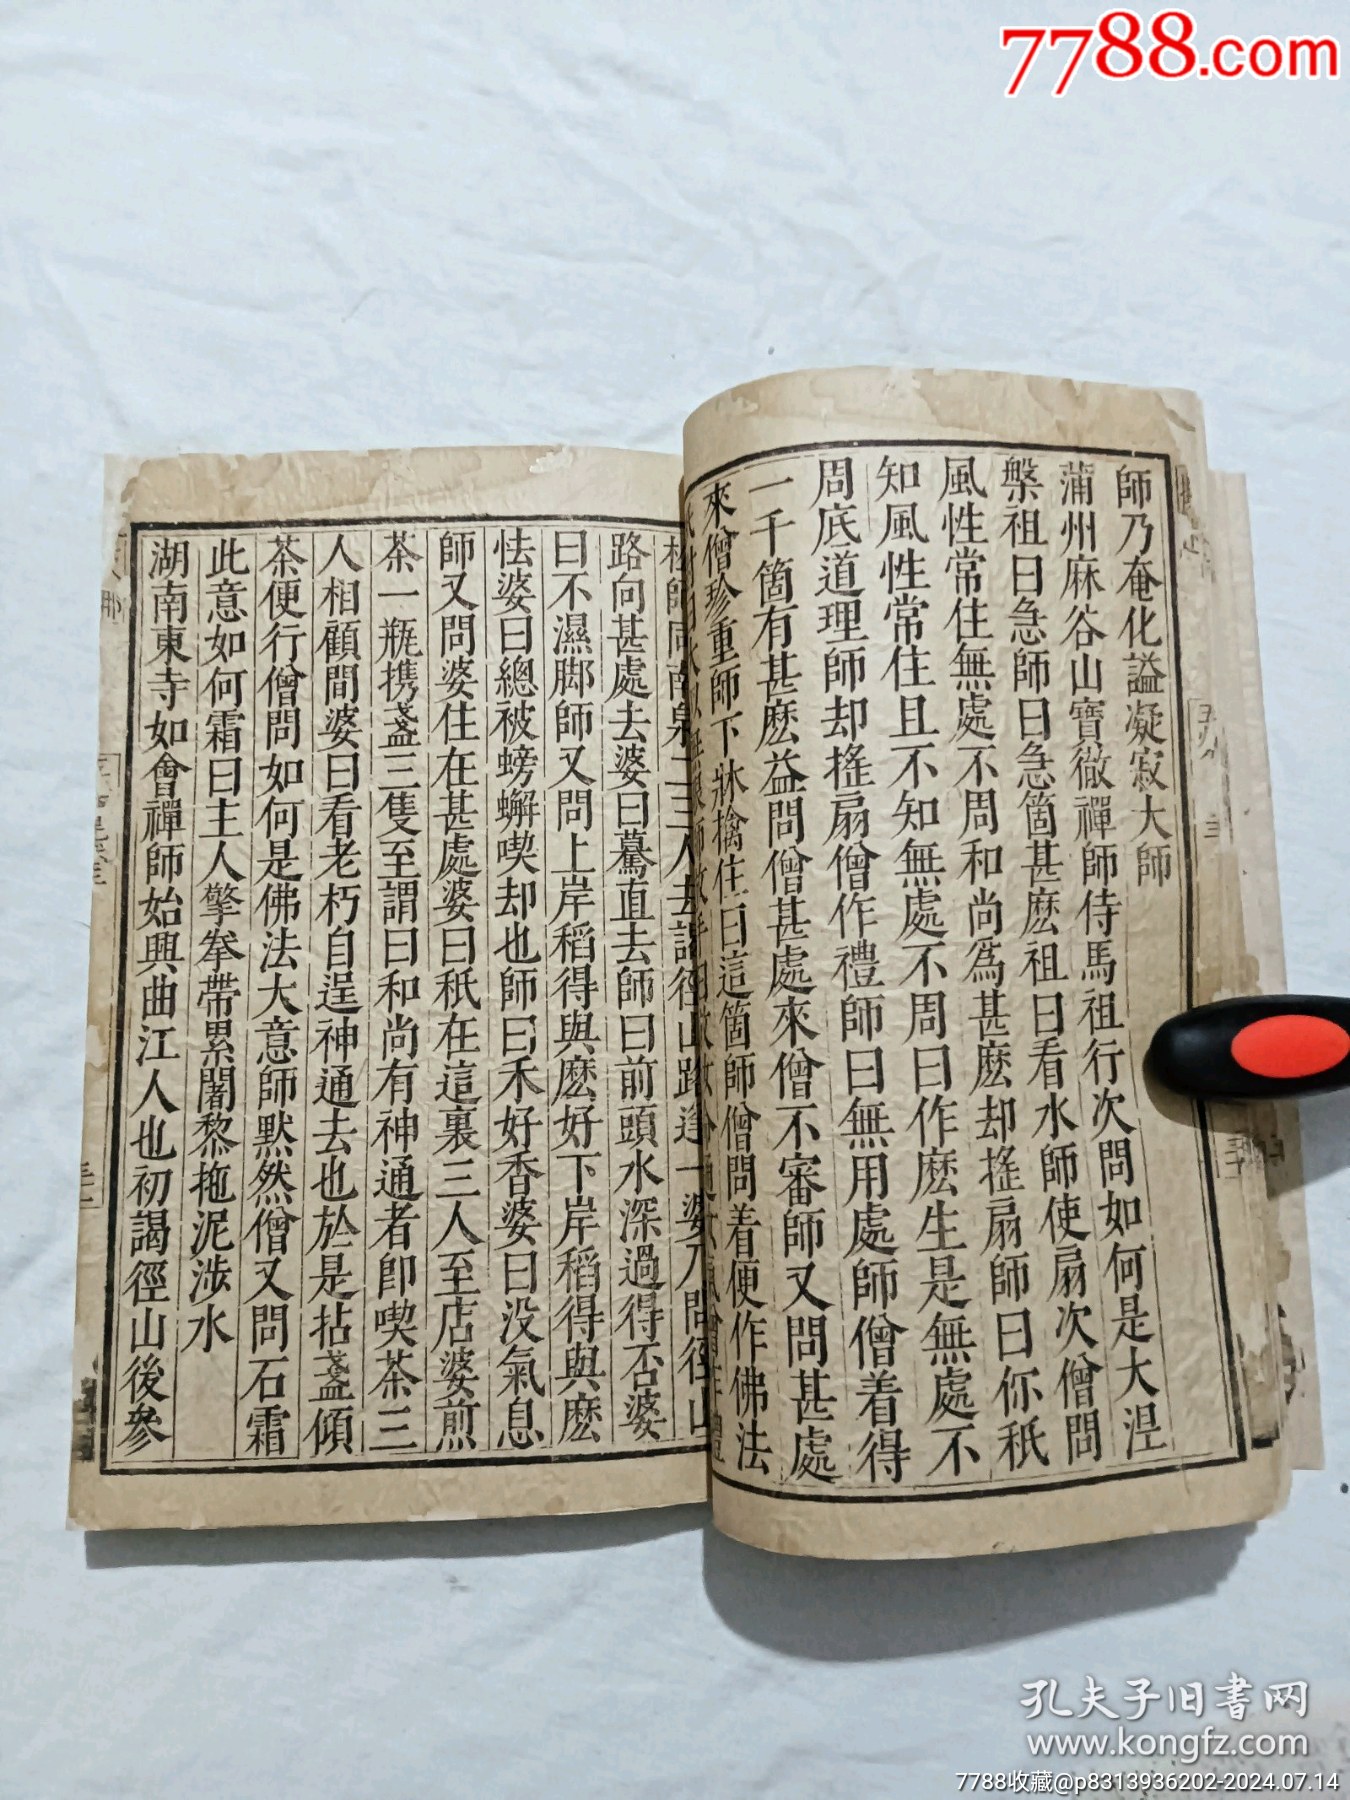 7788.com
師乃奄化謚凝寂大師
蒲州麻谷山寶徹禪師侍馬祖行次問如何是大涅
槃祖曰急師曰急箇甚麽祖曰看水師使扇次僧問
風性常住無處不周和尚爲甚麽却搖扇師曰你秖
知風性常住且不知無處不周曰作麽生是無處不
周底道理師却搖扇僧作禮師曰無用處師僧着得
一千箇有甚麽益問僧甚處來僧不審師又問甚處
來僧珍重師下牀擒住曰這箇師僧問着便作佛法
師同南泉二三人去謁徑山路逢一婆乃問徑山
路向甚處去婆曰驀直去師曰前頭水深過得否婆
曰不濕脚師又問上岸稻得與麽好下岸稻得與麽
怯婆曰總被螃蠏喫却也師曰禾好香婆曰没氣息
師又問婆住在甚處婆曰秖在這裏三人至店婆煎
茶一瓶携盞三隻至謂曰和尚有神通者卽喫茶三
人相顧間婆曰看老朽自逞神通去也於是拈盞傾
茶便行僧問如何是佛法大意師默然僧又問石霜
此意如何霜曰主人擎拳帶累闍黎拖泥涉水
湖南東寺如會禪師始興曲江人也初謁徑山後參
孔夫子旧書网
www.kongfz.com
7788收藏@p8313936202-2024.07.14